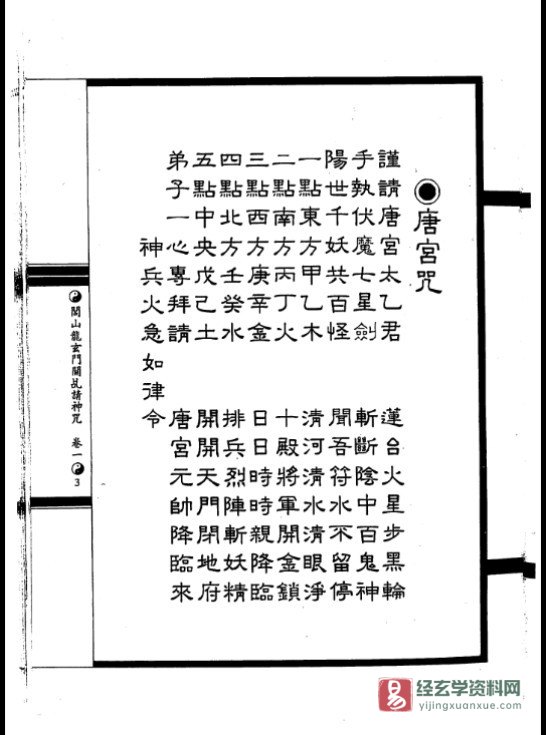 ◉唐宮咒
謹請唐宮太乙君 蓮台火星步黑輪
手執伏魔七星劍 斬斷陰中百鬼神
陽世千妖共百怪 聞吾符水不留停
一點東方甲乙木 清河清水清眼淨
二點南方丙丁火 十殿將軍開金鎖
三點西方庚辛金 日日時時親降臨
四點北方壬癸水 排兵烈陣斬妖精
五點中央戊己土 開開天門閉地府
弟子一心專拜請 唐宮元帥降臨來
神兵火急如律令
閭山龍玄門關乩請神咒 卷一 3
易 经玄学资料网
yijingxuanxue.com